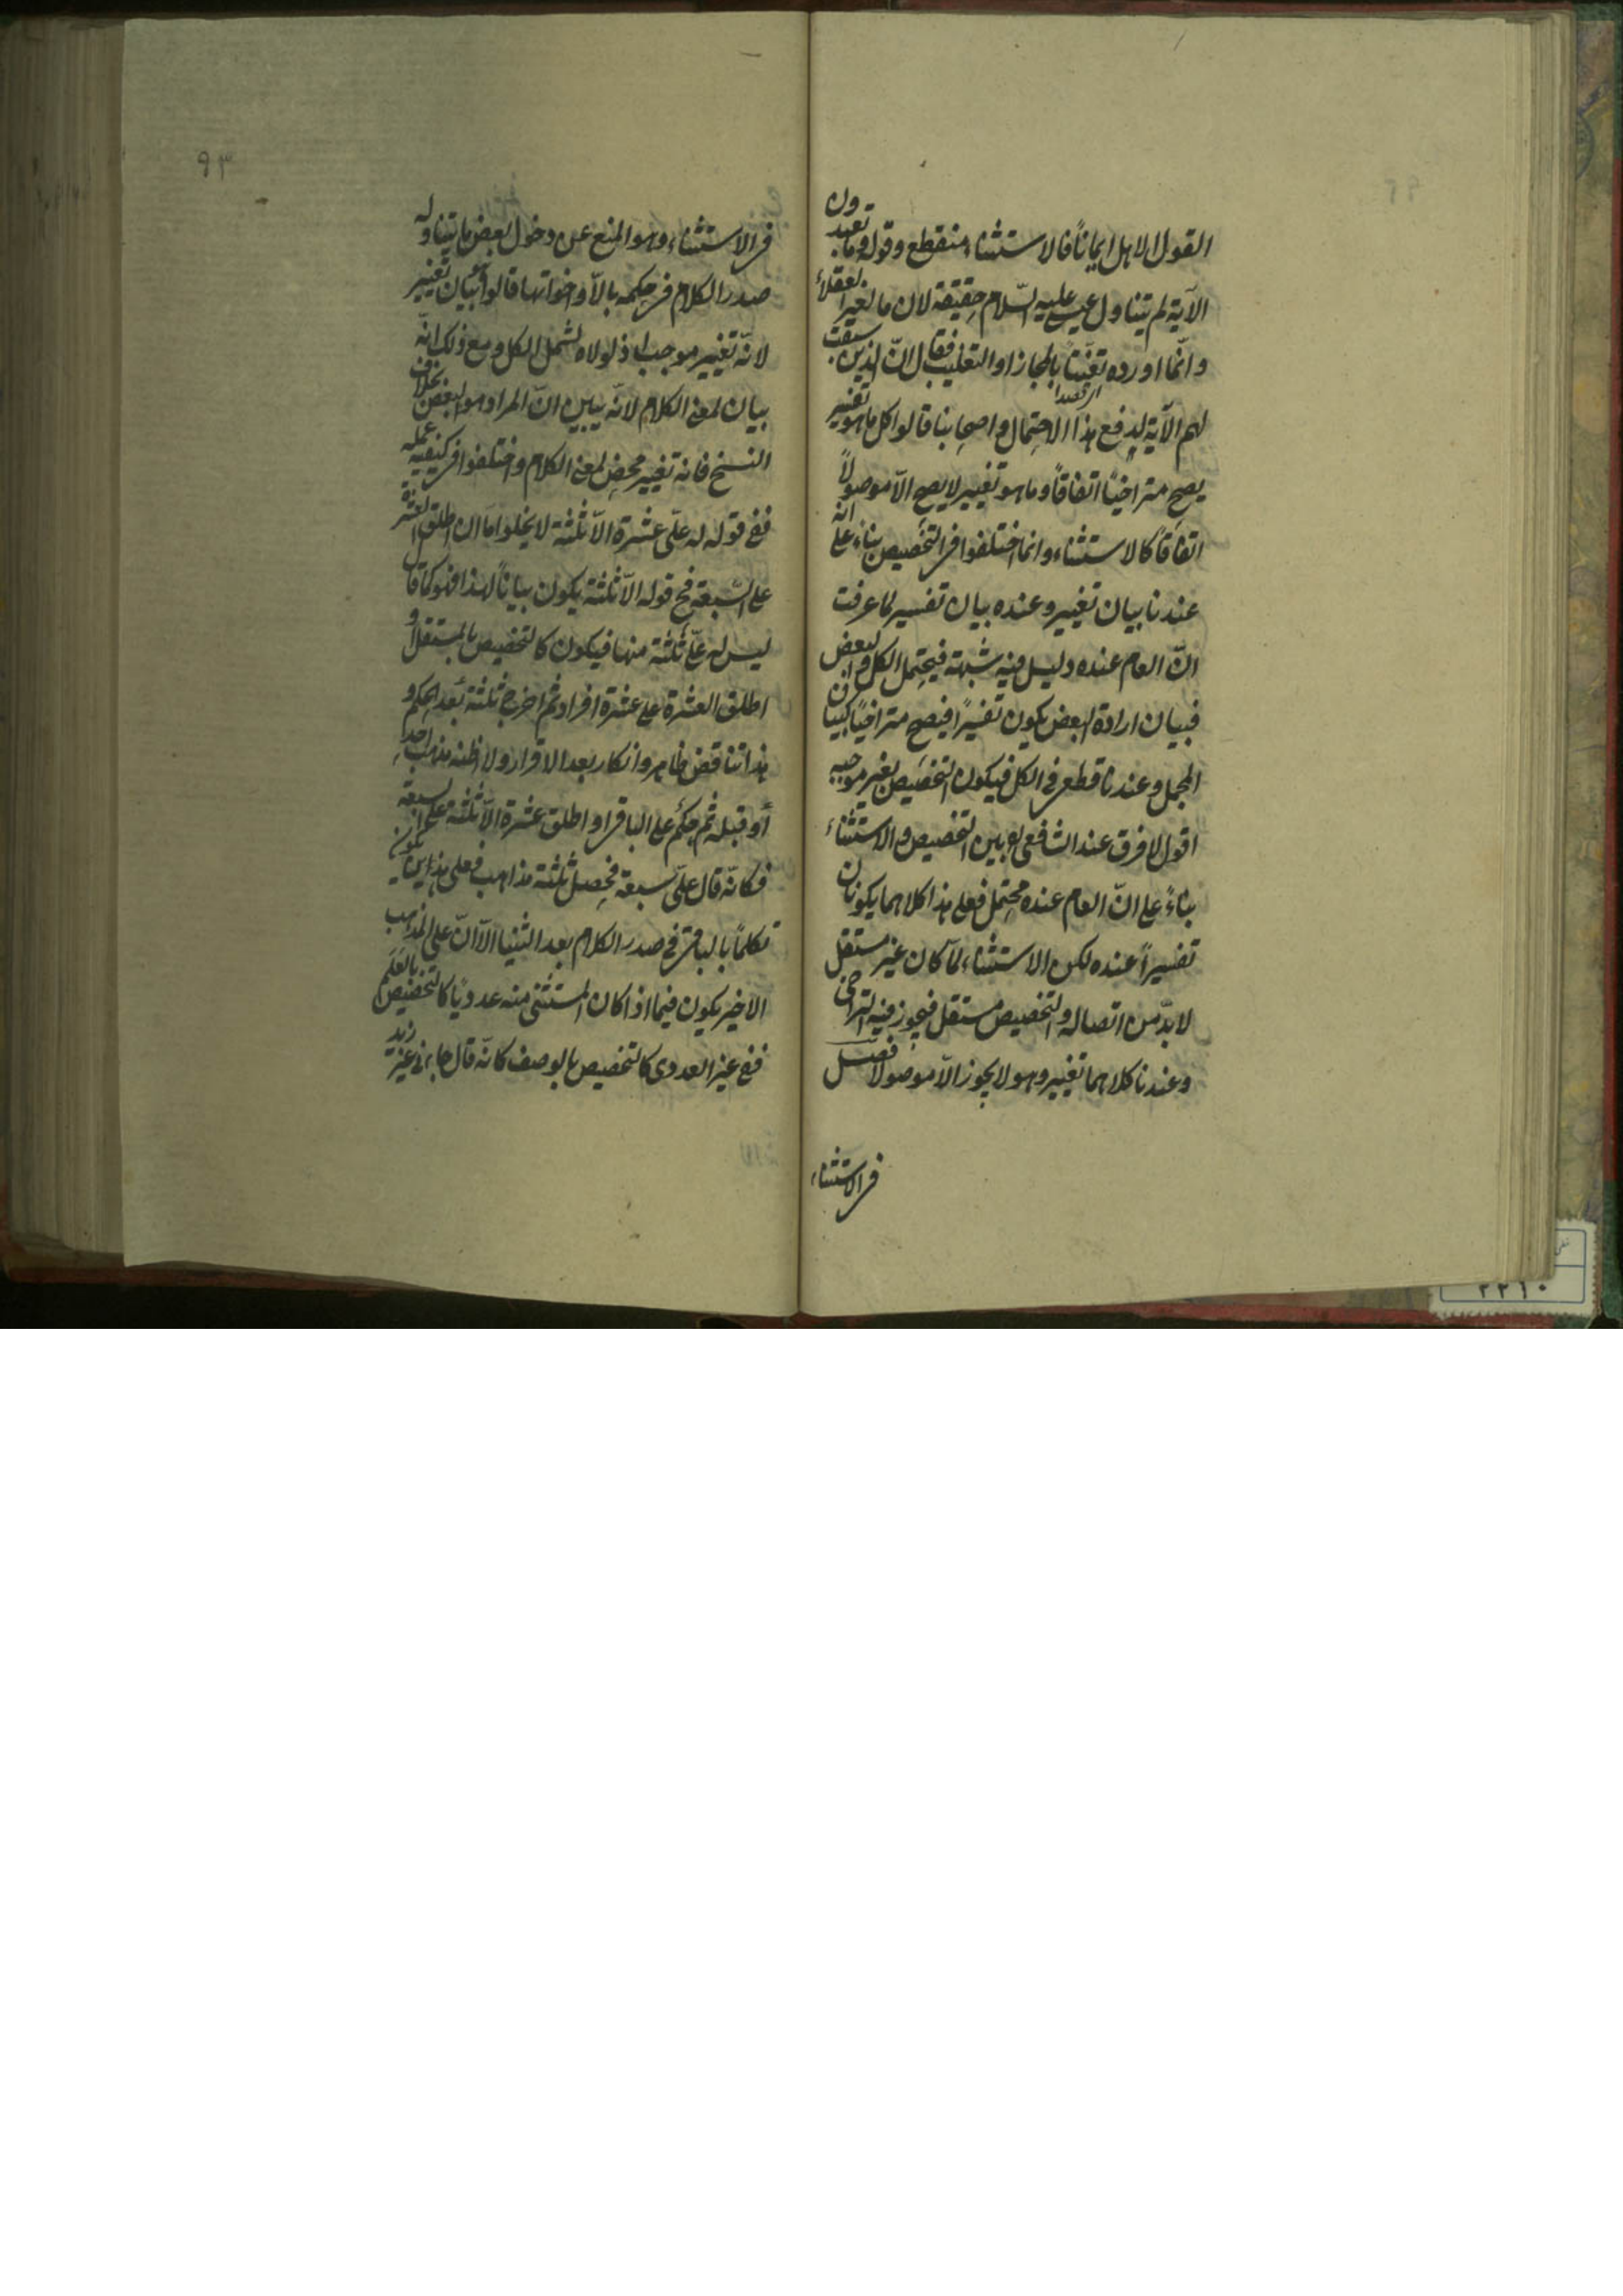 القول لا لاهل ايمانا فالاستثناء منقطع وقوله وما تعبدون
الآية لم يتناول عيسى عليه السلام حقيقة لان ما لغير العقلاء
وانما اورده تعنتا بالمجاز او التغليب فقال ان الذين سبقت
لهم الآية لدفع هذا الاحتمال واصحابنا قالوا كل ما هو تفسير
يصح متراخيا اتفاقا وما هو تغيير لا يصح الا موصولا
اتفاقا كالاستثناء وانما اختلفوا في التخصيص بناء على انه
عندنا بيان تغيير وعنده بيان تفسير لما عرفت
ان العام عنده دليل فيه شبهة فيحتمل الكل والبعض
فبيان ارادة البعض يكون تفسيرا فيصح متراخيا كبيان
المجمل وعندنا قطعي في الكل فيكون التخصيص تغيير موجبه
اقول لا فرق عند الشافعي بين التخصيص والاستثناء
بناءً على ان العام عنده محتمل فعلى هذا كلاهما يكونان
تفسيراً عنده لكن الاستثناء لما كان غير مستقل
لا بد من اتصاله والتخصيص مستقل فيجوز فيه التراخي
وعندنا كلاهما تغيير وهو لا يجوز الا موصولا فصل
في الاستثناء
٩٣
في الاستثناء وهو المنع عن دخول بعض ما يتناوله
صدر الكلام في حكمه بالا واخواتها قالوا بيان تغيير
لانه تغيير موجبه اذ لولاه لشمل الكل ومع ذلك انه
بيان لمعنى الكلام لانه يبين ان المراد هو البعض بخلاف
النسخ فانه تغيير محض لمعنى الكلام واختلفوا في كيفية عمله
ففي قوله له على عشرة الا ثلثة لا يخلوا اما ان اطلق العشرة
على السبعة فح قوله الا ثلثة يكون بيانا لهذا فهو كما قال
ليس له على ثلثة منها فيكون كالتخصيص بالمستقل او
اطلق العشرة على عشرة افراد ثم اخرج ثلثة بعد الحكم و
هذا تناقض ظاهر وانكار بعد الاقرار ولا اظنه مذهب احد
أو قبله ثم حكم على الباقي او اطلق عشرة الا ثلثة على السبعة
فكانه قال على سبعة فحصل ثلثة مذاهب فعلى هذين يكون
تكلما بالباقي في صدر الكلام بعد الثنيا الا ان على المذهب
الاخير يكون فيما اذا كان المستثنى منه عدديا كالتخصيص بالعلم
ففي غير العددي كالتخصيص بالوصف كانه قال جاءني غير زيد